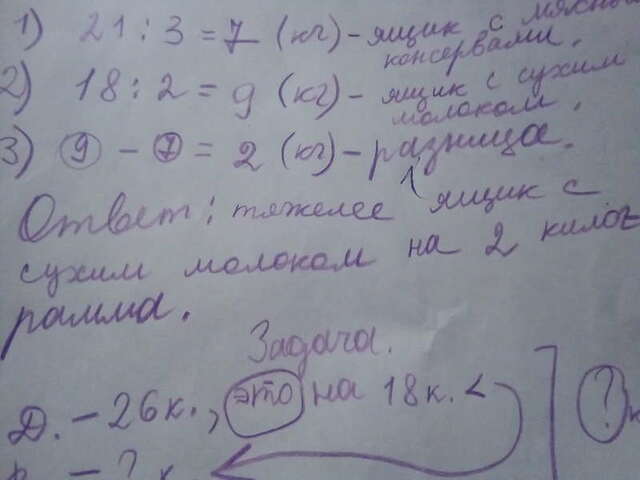 1) 21 : 3 = 7 (кг) – ящик с мясны
консервами.
2) 18 : 2 = 9 (кг) – ящик с сухим
молоком.
3) 9 – 7 = 2 (кг) – разница.
Ответ: тяжелее 1 ящик с
сухим молоком на 2 килог
рамма.
Задача.
Д. – 26 к., это на 18 к. <
? к
– ? к